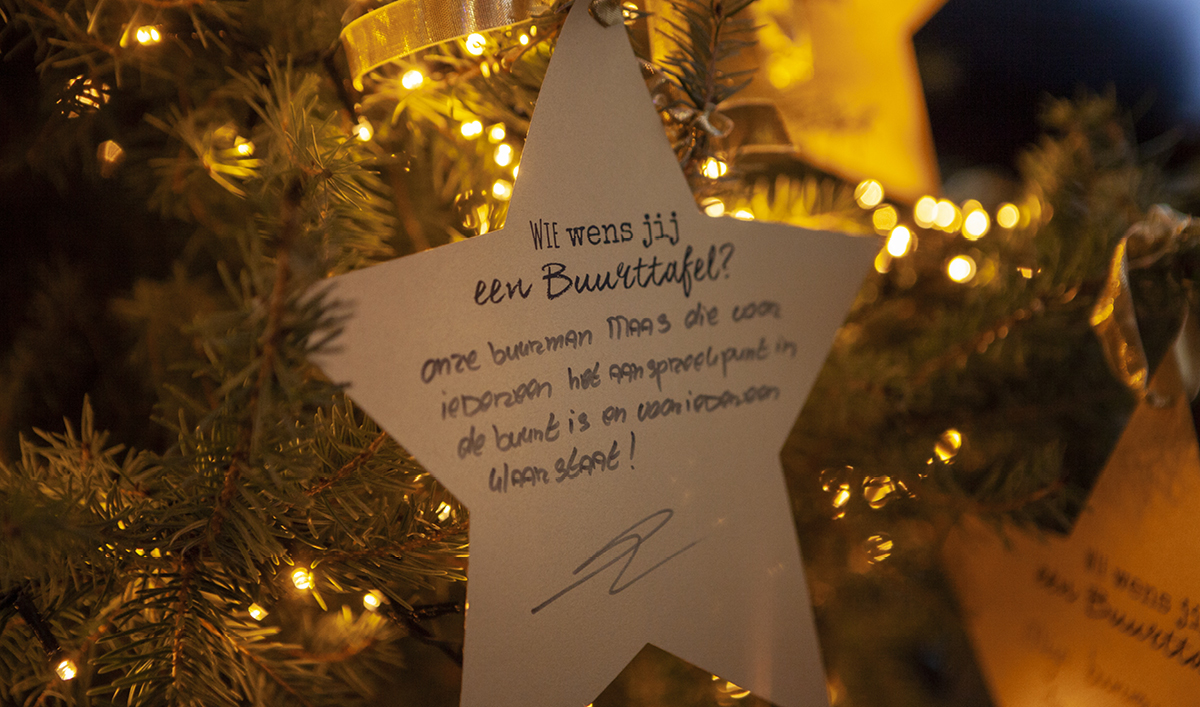 WIE wens jij
een Buurttafel?
onze buurman Maas die voor
iedereen het aanspreekpunt in
de buurt is en voor iedereen
klaar staat!
wens jij
een Buurtta